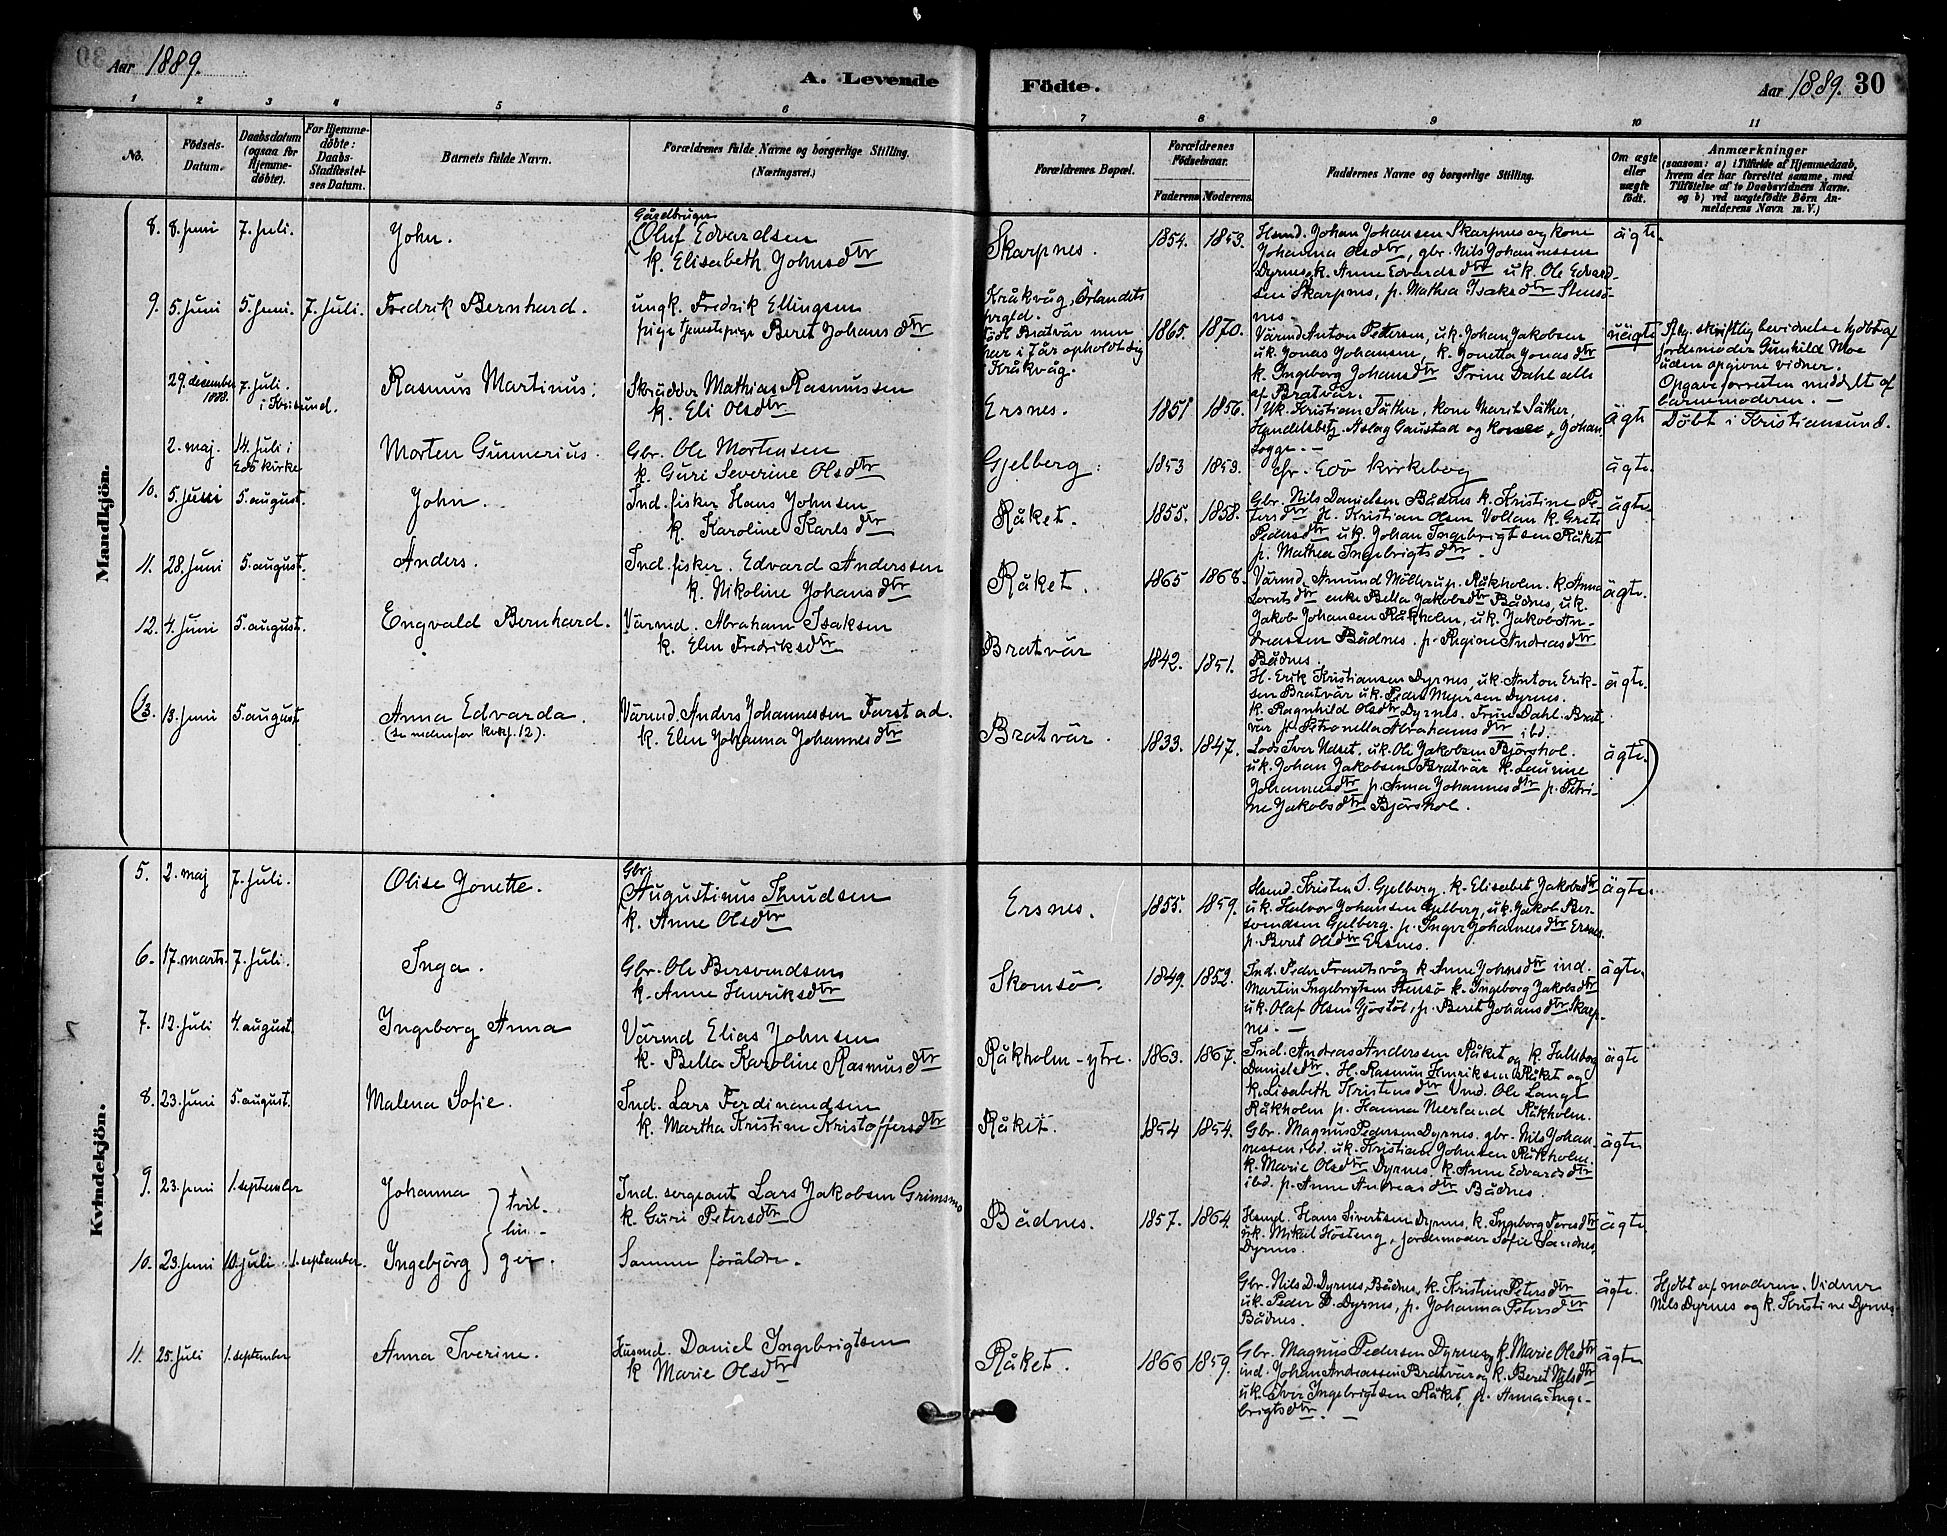 Aar 1889.
A. Levende Födte.
Aar 1889. 30
1 2 3 4 5 6 7 8 9 10 11
No.
Födsels-Datum.
Daabsdatum (ogsaa for Hjemme-döbte).
For Hjemme-döbte: Daabs-Stadfæstel-ses Datum.
Barnets fulde Navn.
Forældrenes fulde Navne og borgerlige Stilling. (Næringsvei.)
Forældrenes Bopæl.
Forældrenes Födselsaar.
Faderens Moderens
Faddernes Navne og borgerlige Stilling.
Om ægte eller uægte födt.
Anmærkninger
(saasom: a) i Tilfælde af Hjemmedaab,
hvem der har forrettet samme, med
Tilföielse af to Daabsvidners Navne.
og b) ved uægtefödte Börn An-
melderens Navn m. V.)
Mandkjön.
8. 8. juni 7. juli. John.
Gårdbruger
Oluf Edvardsen
k. Elisabeth Johnsdtr
Skarpnes. 1854. 1853.
Hsmd. Johan Johansen Skarpnes og kone
Johanna Olsdtr, gbr. Nils Johannessen
Dyrnes, k. Anne Edvardsdtr u.k. Ole Edvard-
sen Skarpnes, p. Mathea Isaksdtr Stensö-
nes
ägte.
9. 5. juni 5. juni. 7. juli. Fredrik Bernhard.
ungk. Fredrik Ellingsen
pige tjenestepige Beret Johansdtr
Kråkvåg, Örlandets
prgld.
födt Bratvär men
har i 7 år opholdt sig
Kråkvåg.
1865. 1870.
Värmd Anton Pedersen, u.k. Johan Jakobsen
u.k. Jonas Johansen, k. Jonetta Jonasdtr
k. Ingeborg Johansdtr Trine Dahl alle
af Bratvär.
uägte
skriftlig bevidnelse hjdbt af
jordemoder Gunhild Moe
uden opgivne vidner.
Opgave forresten meddelt af
barnemoderen. —
29. december 1888. 7. juli. i Krisund. Rasmus Martinus.
Skrädder Mathias Rasmussen
k. Eli Olsdtr
Ersnes. 1851 1856.
Uk. Kristian Säther, kone Marit Säther,
Handelsbetj. Aslag Gaustad og kone, Johan
Sogge. —
ägte
Döbt i Kristiansund.
2. maj. 14. juli i Edö kirke Morten Gunnerius.
Gbr. Ole Mortensen
k. Guri Severine Olsdtr
Gjelberg. 1853 1859.
cfr. Edö kirkebog
ägte.
10. 5. juni 5. august. John.
Ind. fisker Hans Johnsen
k. Karoline Karlsdtr
Råket. 1855. 1858.
Gbr. Nils Danielsen Bådnes k. Kristine Pe-
tersdtr H. Kristian Olsen Vollan k. Grete
Pedersdtr u.k. Johan Ingebrigtsen Råket
p. Mathea Ingebrigtsdtr.
ägte.
11. 28. juni 5. august. Anders.
Ind. fisker. Edvard Anderssen
k. Nikoline Johansdtr
Råket. 1865 1868.
Värmd. Amund Möllerup. Råkholm. k. Anna
Larntsdtr enke Bella Jakobsdtr Bådnes, u.k.
Jakob Johansen Råkholm, u.k. Jakob An-
dreassen Bådnes. p. Regine Andreasdtr
Bådnes.
ägte.
12. 4. juni 5. august. Engvald Bernhard.
Värmd. Abraham Isaksen
k. Elen Fredriksdtr
Bratvär 1842. 1851.
H. Erik Kristiansen Dyrnes, u.k. Anton Erik-
sen Bratvär u.k. Peder Dyrnes.
k. Ragnhild Olsdtr Dyrnes. Trine Dahl. Brat-
vär p. Petronella Abrahamsdtr ibd.
ägte.
(13. 13. juni 5. august Anna Edvarda.
(se nedenfor kvkj. 12).
Värmd. Anders Johannessen Farstad.
k. Elen Johanna Johannesdtr
Bratvär. 1833. 1847.
Lods Iver Udset. u.k. Ole Jakobsen Bjärshol.
u.k. Johan Jakobsen Bratvär k. Laurine
Johannesdtr p. Anna Johannesdtr p. Petri-
ne Jakobsdtr Bjärshol.
ägte.)
Kvindekjön.
5. 2. maj 7. juli. Olise Jonette.
Gbr.
Augustinus Knudsen
k. Anne Olsdtr
Ersnes. 1855. 1859.
Hsmd. Kristen S. Gjelberg. k. Elisabet Jakobsdtr
u.k. Halvor Johansen Gjelberg, u.k. Jakob Ber-
svendsen Gjelberg. p. Inger Johannesdtr Ersnes.
p. Beret Olsdtr Ersnes.
ägte.
6. 17. marts. 7. juli. Inga.
Gbr. Ole Bersvendsen
k. Anne Henriksdtr
Skomsö. 1849. 1852.
Ind. Peder Frantsvåg k. Anne Johnsdtr ind.
Martin Ingebrigtsen Stensö k. Ingeborg Jakobsdtr
u.k. Olaf Olsen Gjöstöl, p. Beret Johansdtr Skarp-
nes. —
ägte.
7. 12. juli 4. august. Ingeborg Anna
Värmd Elias Johnsen
k. Bella Karoline Rasmusdtr
Råkholm-ytre. 1863. 1867.
Ind. Andreas Anderssen Råket og k. Jalleborg
Danielsdtr. H. Rasmus Henriksen Råket og
k. Lisabeth Kristensdtr Vmd. Ole Langt
Råkholm p. Hanna Nerland Råkholm.
ägte
8. 23. juni 5. august. Malena Sofie.
Ind. Lars Ferdinandsen
k. Martha Kristine Kristoffersdtr
Råket. 1854 1854.
Gbr. Magnus Pedersen Dyrnes. gbr. Nils Johan-
nessen, ibd. u.k. Kristian Johnsen Råkholm.
k. Marie Olsdtr Dyrnes. k. Anne Edvardsdtr
ibd. p. Anne Andreasdtr Bådnes.
ägte
9. 23. juni 1. september Johanna
tvil-
lin-
ger.
Ind. sergeant Lars Jakobsen Grimsmo
k. Guri Petersdtr
Bådnes. 1857. 1864.
Hsmd. Hans Sivertsen Dyrnes, k. Ingeborg Taresdtr
u.k. Mikal Hösteng, jordemoder Sofie Sandnes
Dyrnes.
ägte
10. 23. juni 10. juli 1. september. Ingebjörg
Samme föräldre.
Gbr. Nils D. Dyrnes, Bådnes, k. Kristine Petersdtr
u.k. Peder D. Dyrnes, p. Johanna Petersdtr
Bådnes.
ägte.
Hjdbt af moderen. Vidner
Nils Dyrnes og k. Kristine Dyrnes.
11. 25. juli 1. september Anna Iverine.
Husmd. Daniel Ingebrigtsen
k Marie Olsdtr
Råket. 1866 1859.
Gbr. Magnus Pedersen Dyrnes, k. Marie Olsdtr
ind. Johan Andreassen Bratvär og k. Beret Nilsdtr
u.k. Iver Ingebrigtsen Råket, p. Anna Inge-
brigtsdtr. —
ägte